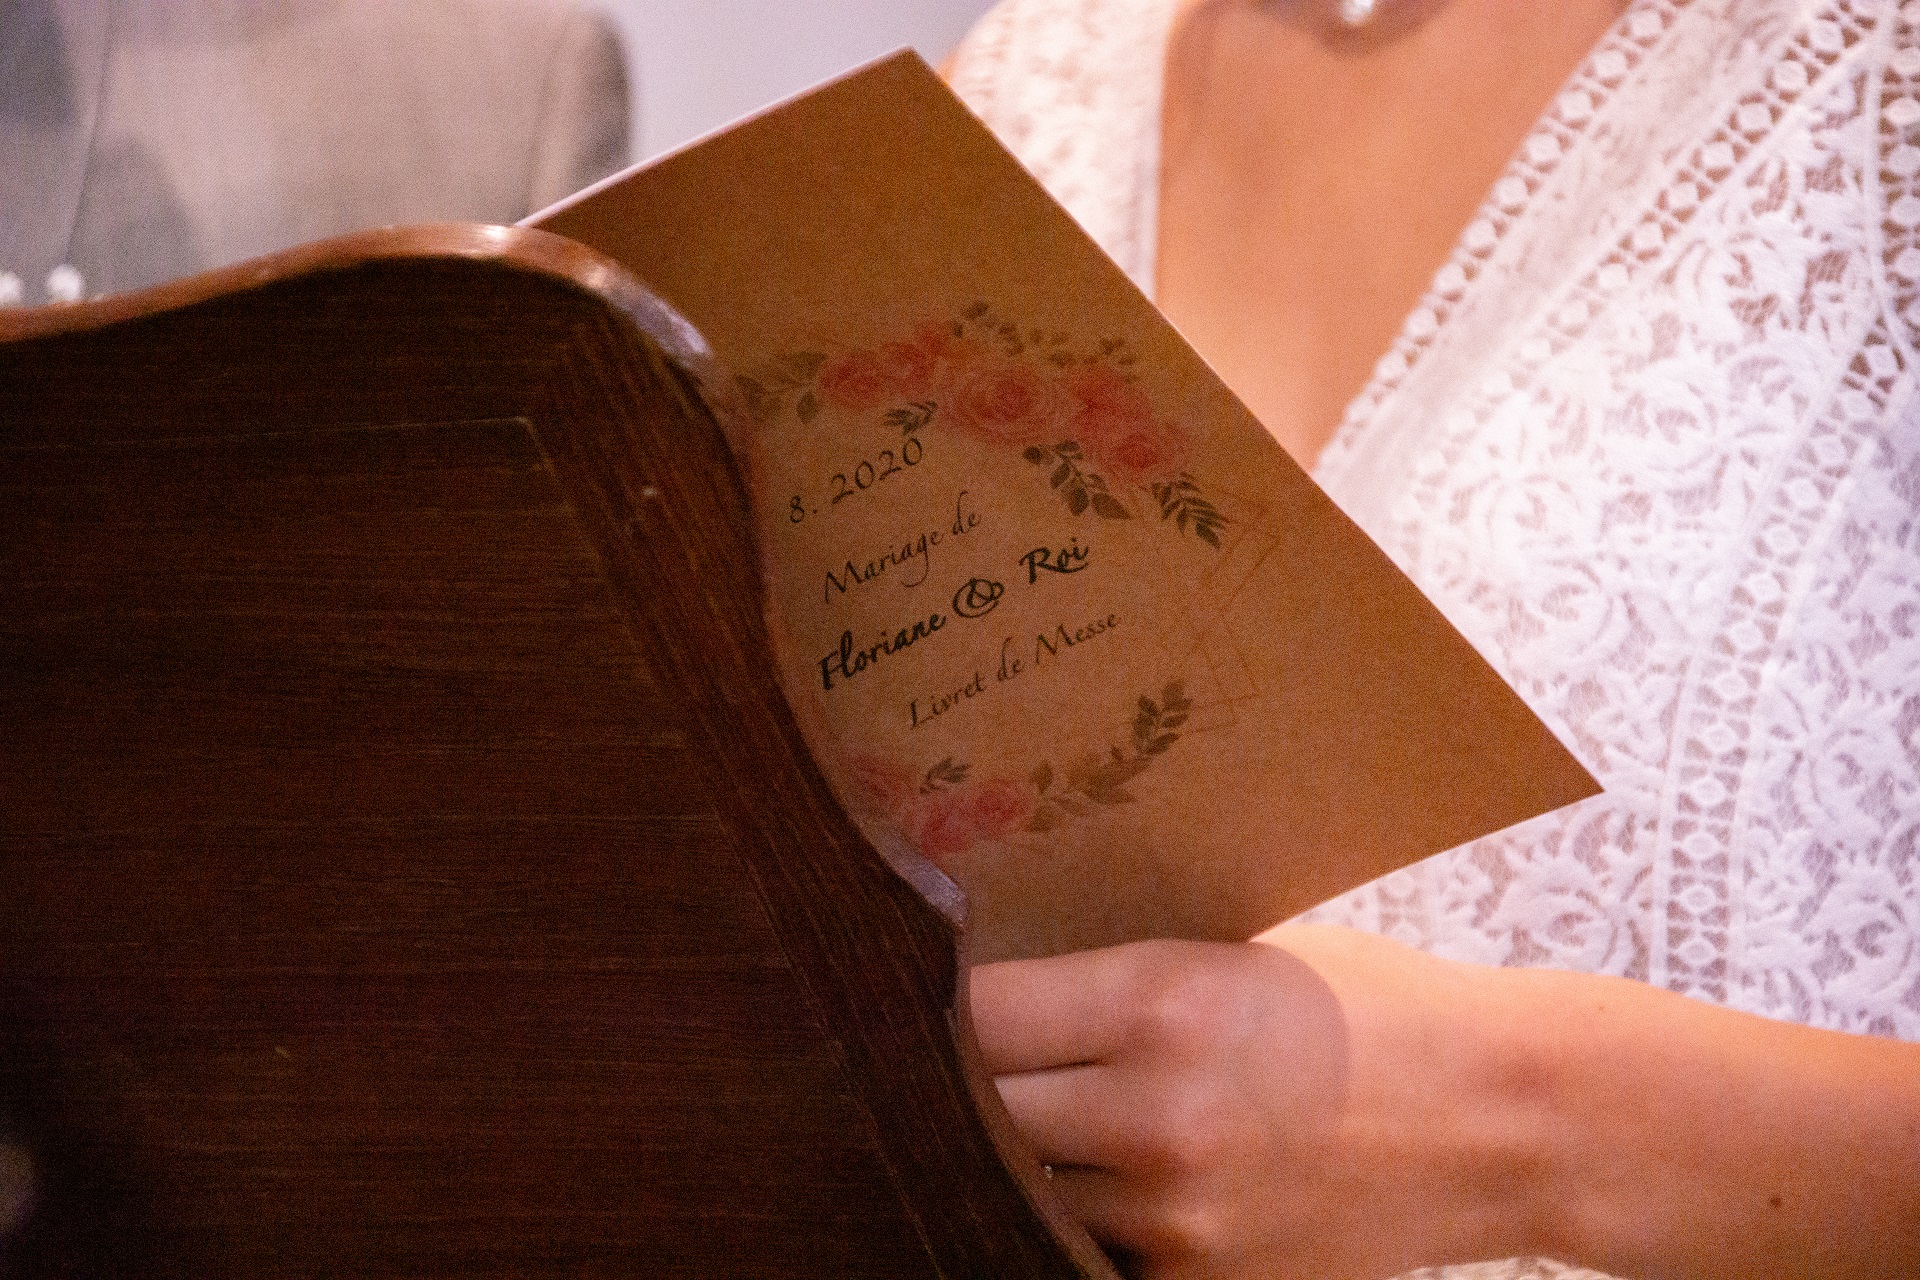 8. 2020
Mariage de
Floriane & Roi
Livret de Messe